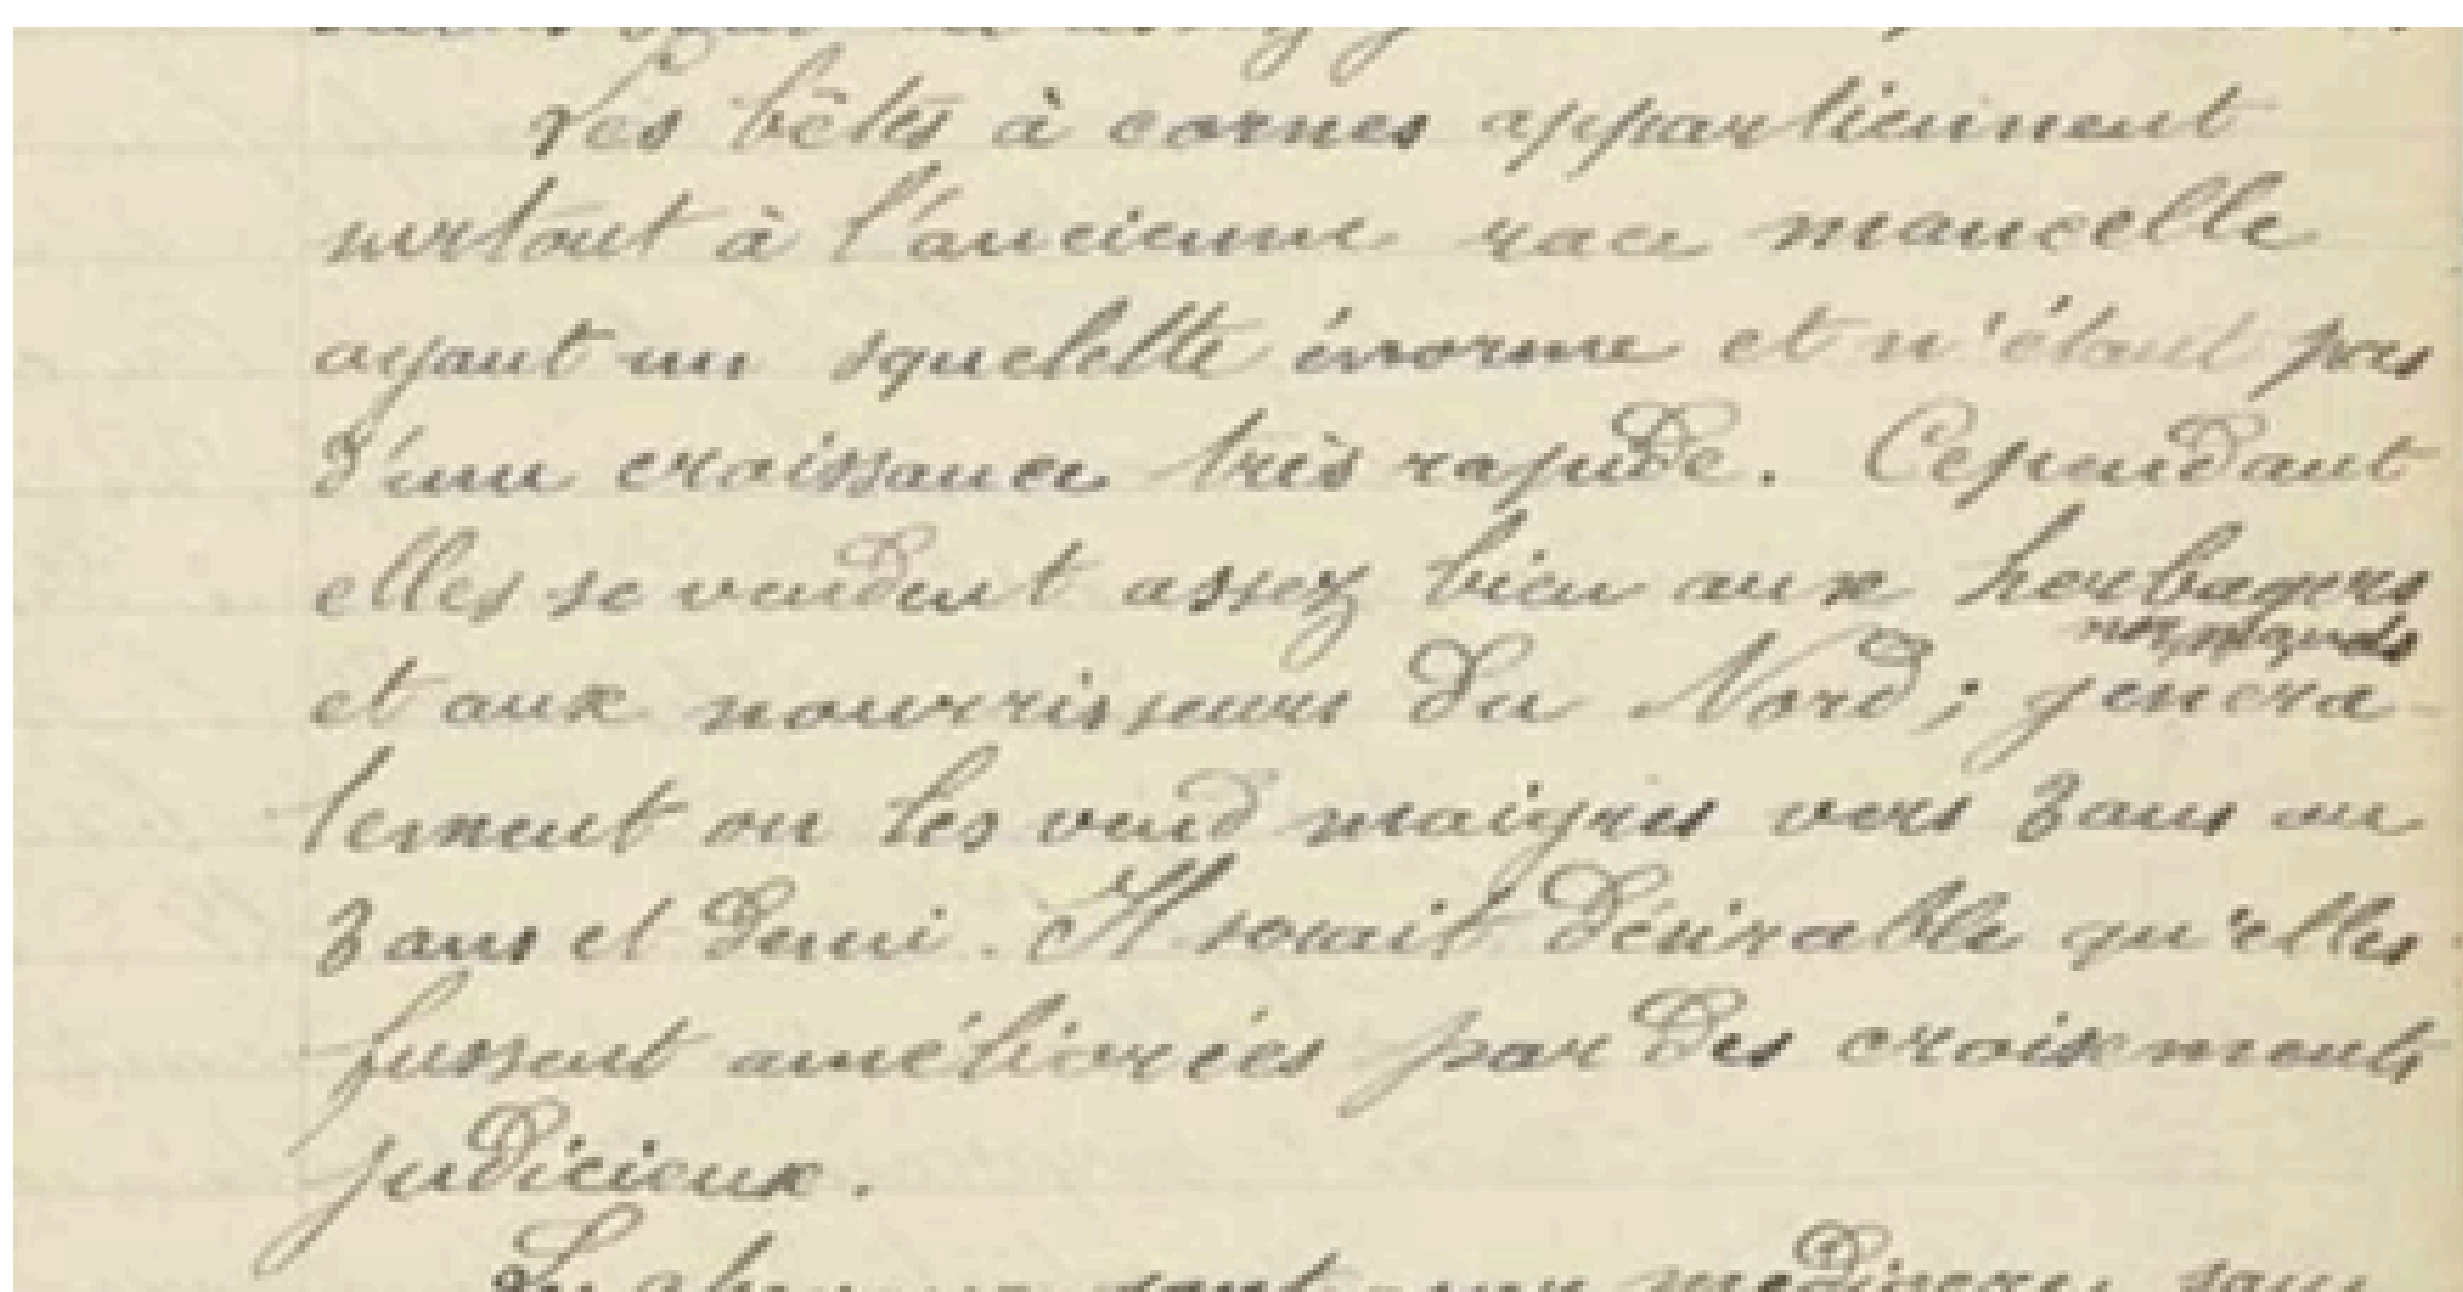 Les bêtes à cornes appartiennent
surtout à l'ancienne race mancelle
ayant un squelette énorme et n'étant pas
d'une croissance très rapide. Cependant
elles se vendent assez bien aux herbagers
normands
et aux nourrisseurs du Nord ; généra-
lement on les vend maigres vers 3 ans ou
3 ans et demi. Il serait désirable qu'elles
fussent améliorées par des croisements
judicieux.